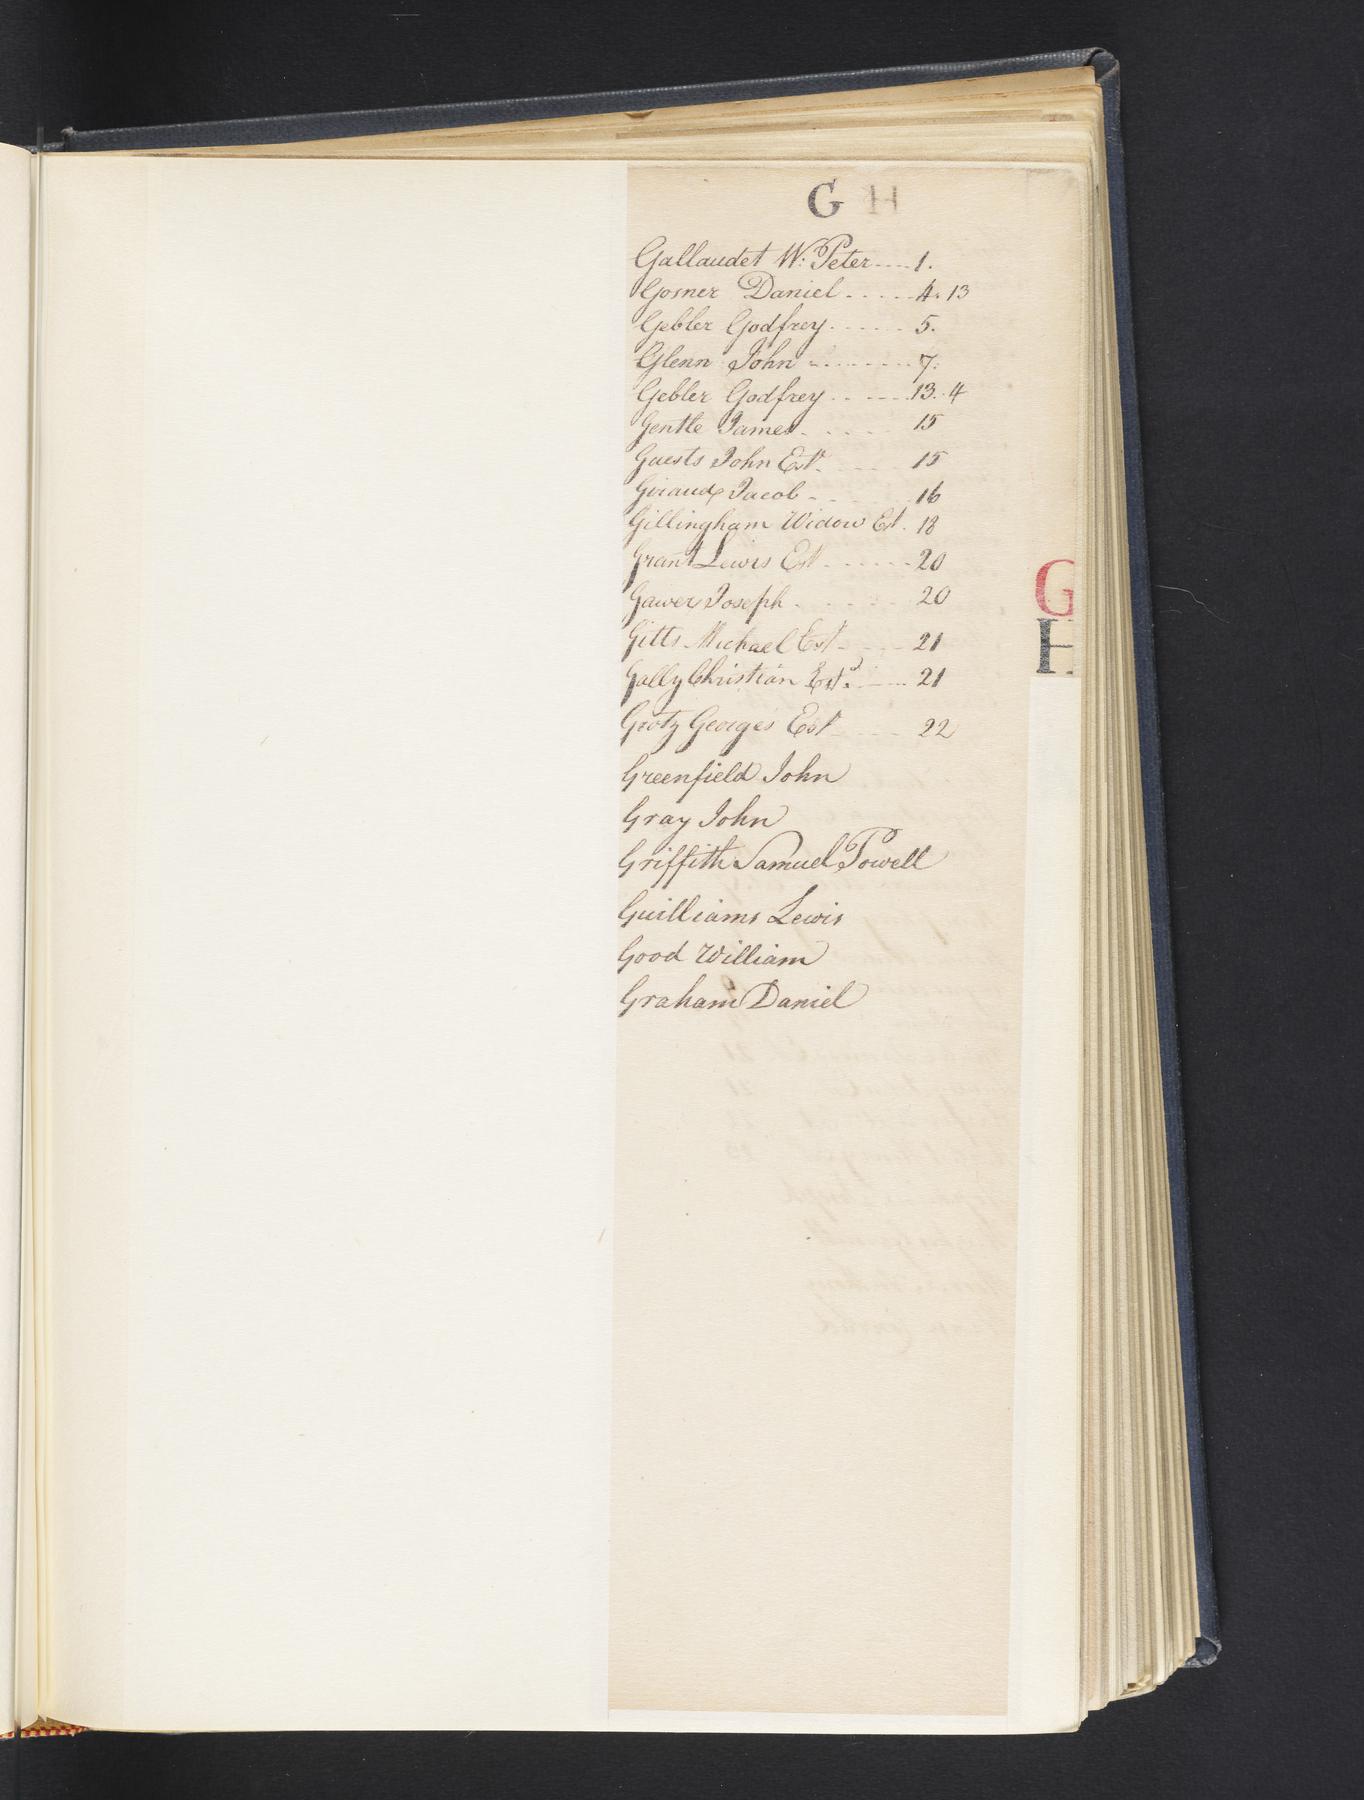 G H
Gallaudet W: Peter .... 1.
Gosner Daniel ..... 4. 13
Gebler Godfrey ...... 5.
Glenn John ........ 7.
Gebler Godfrey ..... 13. 4
Gentle James ..... 15
Guests John Est. .... 15
Giraud Jacob .... 16
Gillingham Widow Est. 18
Grant Lewis Est ...... 20
Gawer Joseph ..... 20
Gitts Michael Est .... 21
Gally Christian Est. .... 21
Grotz Georges Est .... 22
Greenfield John
Gray John
Griffith Samuel Powell
Guilliams Lewis
Good William
Graham Daniel
G
H